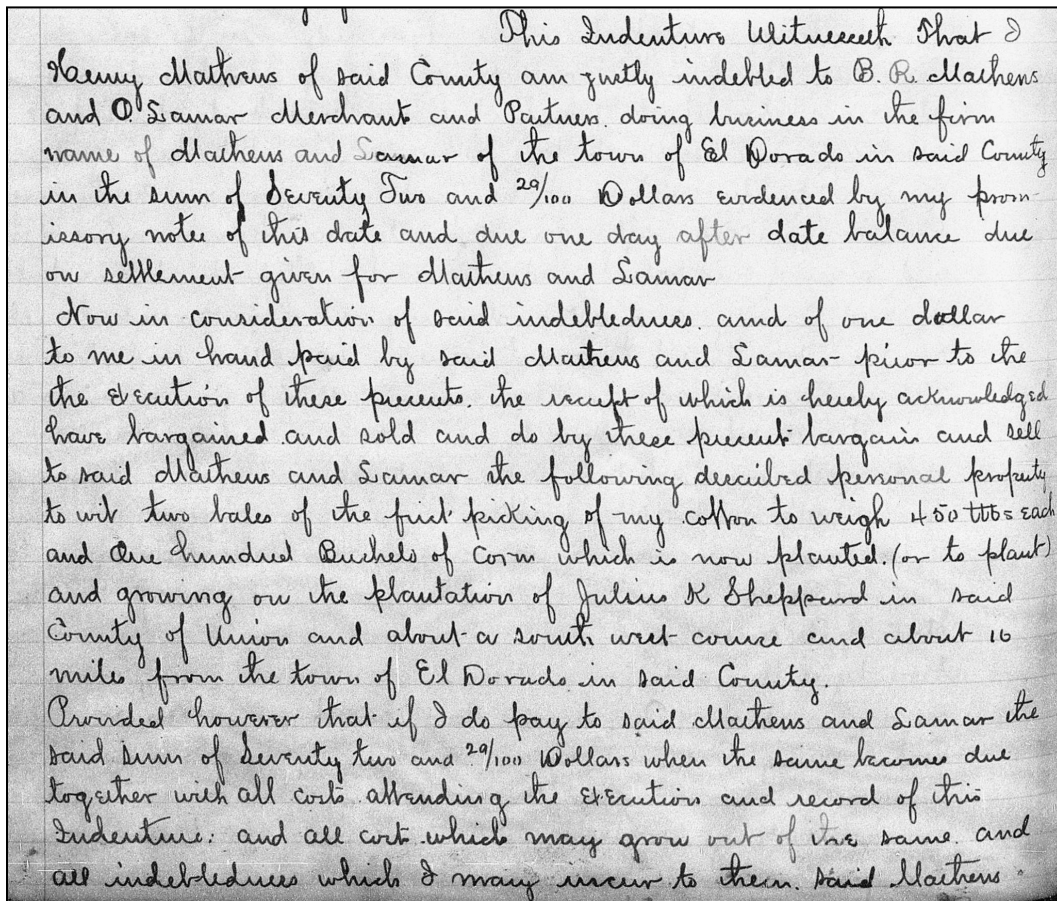 This Indenture Witnesseth That I
Henry Mathews of said County am justly indebted to B. R. Mathews
and O. Lamar Merchant and Partners. doing business in the firm
name of Mathews and Lamar of the town of El Dorado in said County
in the sum of Seventy Two and 29/100 Dollars evidenced by my prom-
issory note of this date and due one day after date balance due
on settlement given for Mathews and Lamar
Now in consideration of said indebtedness. and of one dollar
to me in hand paid by said Mathews and Lamar prior to the
the Execution of these precents. the receipt of which is hereby acknowledged
have bargained and sold and do by these precent bargain and sell
to said Mathews and Lamar the following described personal property
to wit two bales of the first picking of my cotton to weigh 450 lbs each
and One hundred Buchels of Corn which is now planted. (or to plant)
and growing on the plantation of Julius K Sheppard in said
County of Union and about a south west course and about 16
miles from the town of El Dorado in said County.
Provided however that if I do pay to said Mathews and Lamar the
said sum of Seventy two and 29/100 Dollars when the same becomes due
together with all costs attending the Execution and record of this
Indenture: and all cost which may grow out of the same. and
all indebtedness which I may incur to them. said Mathews